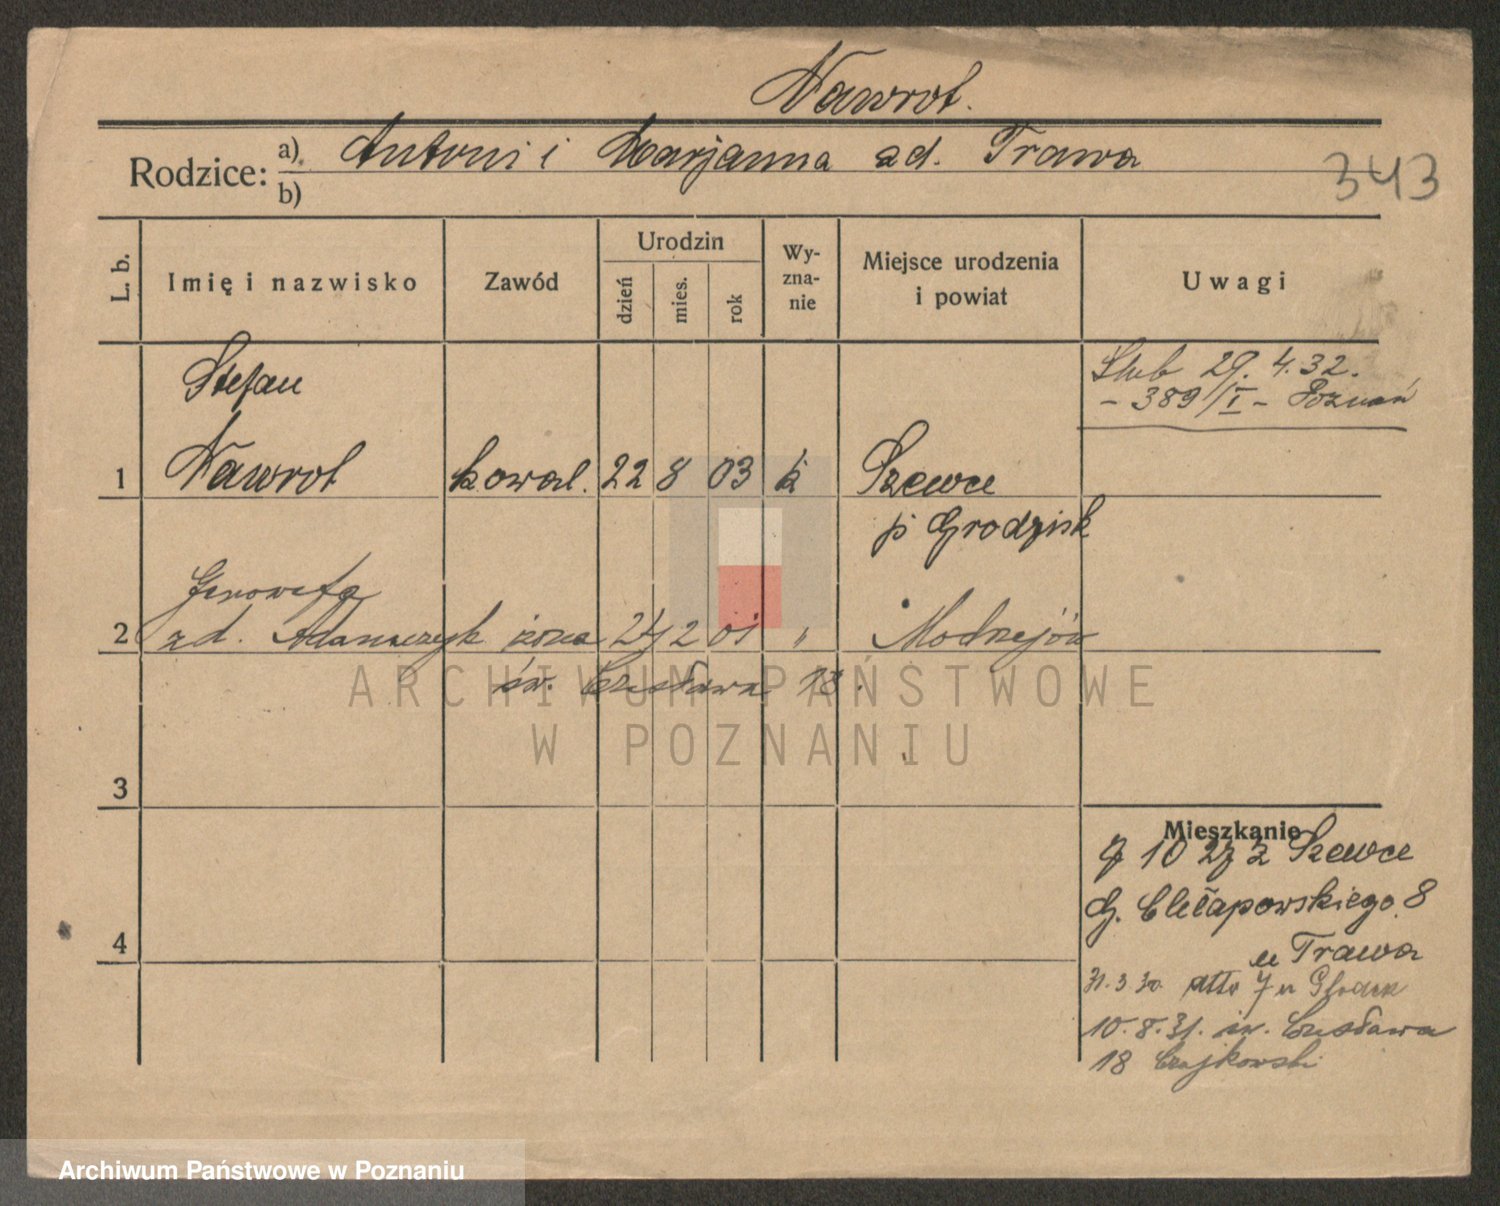 Nawrot.
Rodzice: a) Antoni i Marjanna zd. Trawa
b)
343
L. b.
Imię i nazwisko
Zawód
Urodzin
dzień
mies.
rok
Wy-
zna-
nie
Miejsce urodzenia
i powiat
Uwagi
Ślub 29. 4. 32.
- 389/I - Poznań
Stefan
1 Nawrot kowal. 22 8 03 k Szewce
p Grodzisk
Genowefa
2 zd. Adamczyk żona 2 01 " Modrzejów
św. Czesława 18.
ARCHIWUM PAŃSTWOWE
W POZNANIU
3
4
Mieszkanie
10 27 z Szewce
G. Chłapowskiego 8
u Trawa
31.3.30 dtto 7 u
10.8.31. św. Czesława
18 Czajkowski
Archiwum Państwowe w Poznaniu